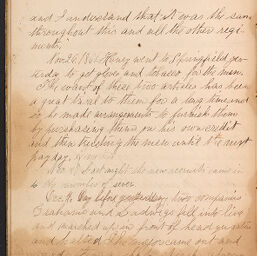 and I understand that it was the same
throughout this and all the other regi-
ments.
Nov. 26, Bob Henry went to Springfield yes-
terday to get gloves and tobacco for the men.
The want of these two articles has been
a great trial to them for a long time and
so he made arrangements to furnish them
by purchasing them on his own credit
and then trusting the men until the next
pay day.
Last night the new recruits came in
to the number of seven
Dec. 9. Day before yesterday two companies
Grahams and fell into line
and marched up in front of head quarters
and halted. The major came out and